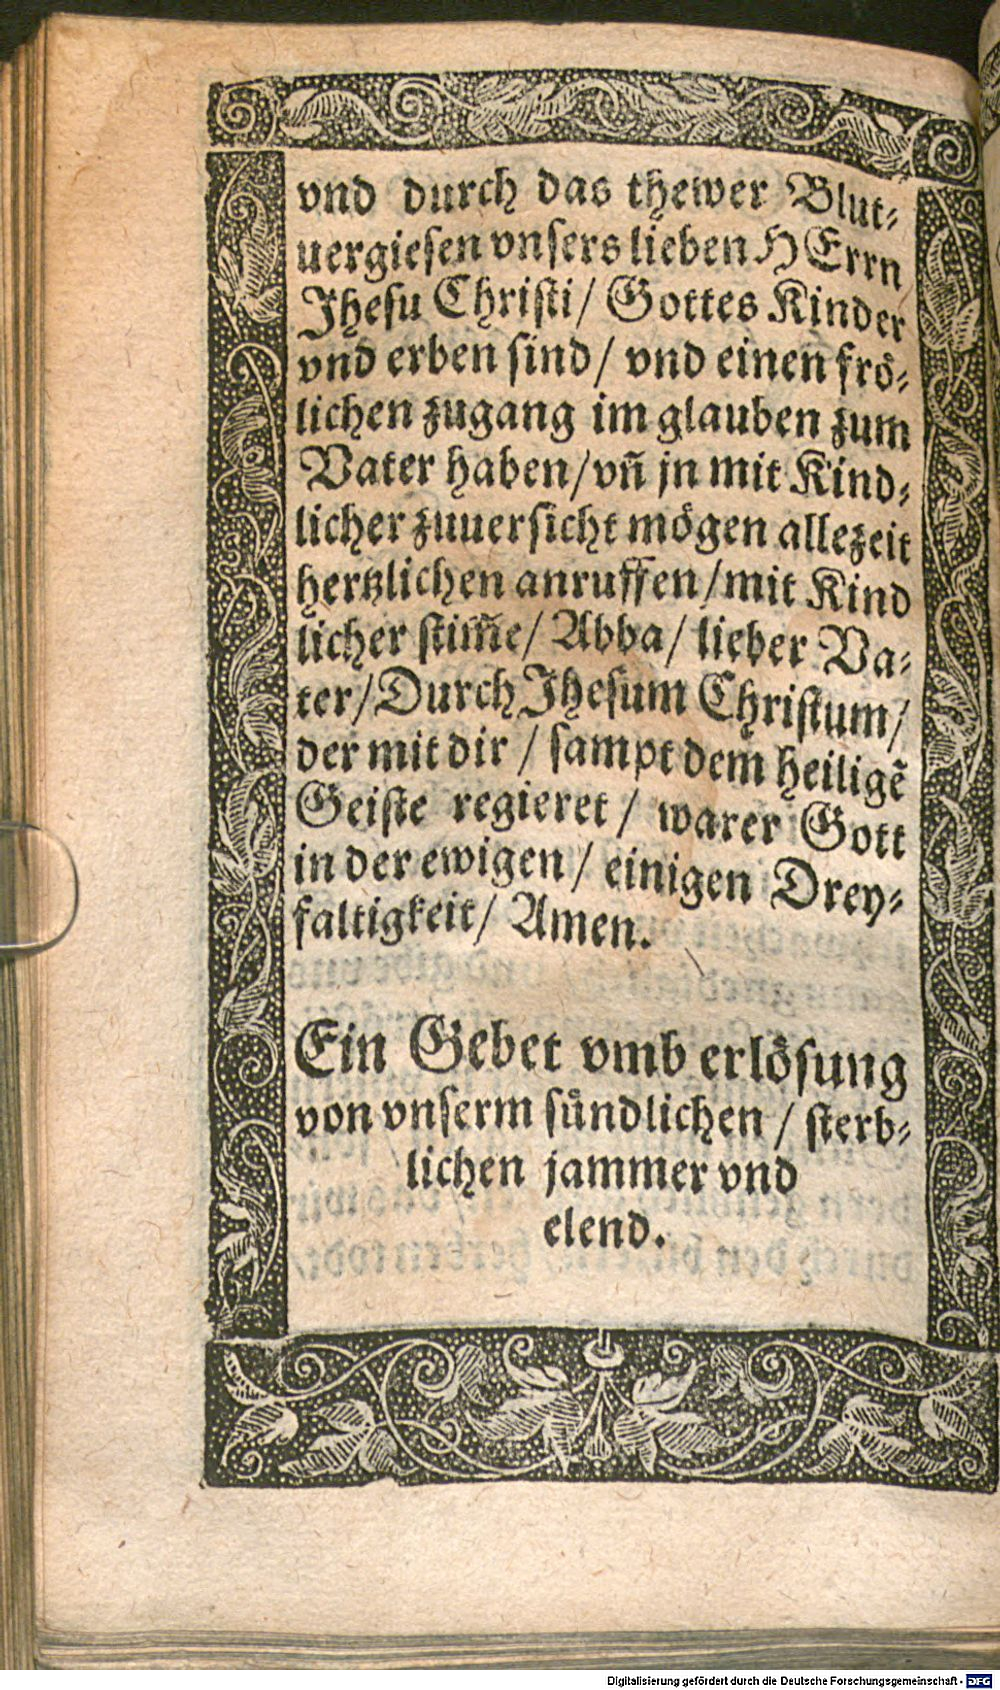 vnd durch das thewer Blut⸗
uergiesen vnsers lieben HErrn
Jhesu Christi/ Gottes Kinder
vnd erben sind/ vnd einen frö⸗
lichen zugang im glauben zum
Vater haben/vñ jn mit Kind⸗
licher zuuersicht mögen allezeit
hertzlichen anruffen/mit Kind
licher stim̃e/ Abba/ lieber Va⸗
ter/Durch Jhesum Christum/
der mit dir / sampt dem heiligẽ
Geiste regieret/ warer Gott
in der ewigen/ einigen Drey⸗
faltigkeit/ Amen.
Ein Gebet vmb erlösung
von vnserm sündlichen / sterb⸗
lichen jammer vnd
elend.
Digitalisierung gefördert durch die Deutsche Forschungsgemeinschaft - DFG